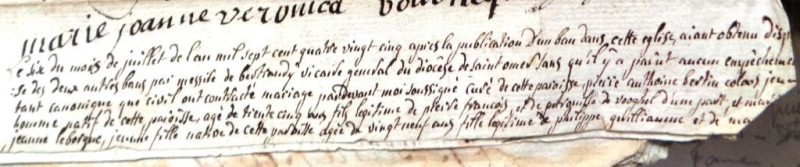 marie joanne veronica
Le six du mois de juillet de l'an mil sept cent quatre vingt cinq apres la publication d'un ban dans cette eglise, aiant obtenu disp
se des deux autres bans par messire de vicaire general du diocèse de saint omer, sans qu'il y a paint aucun empecheme
tant canonique que civil ont contracté mariage pardevant moi soussigné curé de cette paroisse, pierre anthoine bertin colars, jeun
homme natif de cette paroisse, age de trente cinq ans fils legitime de pierre francois, et de petronille de d'une part, et mari
jeanne jeune fille native de cette paroisse agée de vingt neuf ans fille legitime de philippe guilliaume et de ma